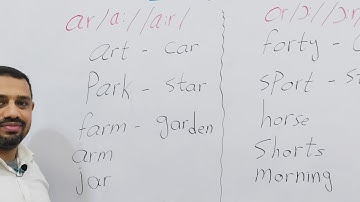 ar/a:/ /a:r/
art - car
Park - star
farm - garden
arm
jar
or/ɔ:/ /ɔ:r
forty -
sport - s
horse
Shorts
morning